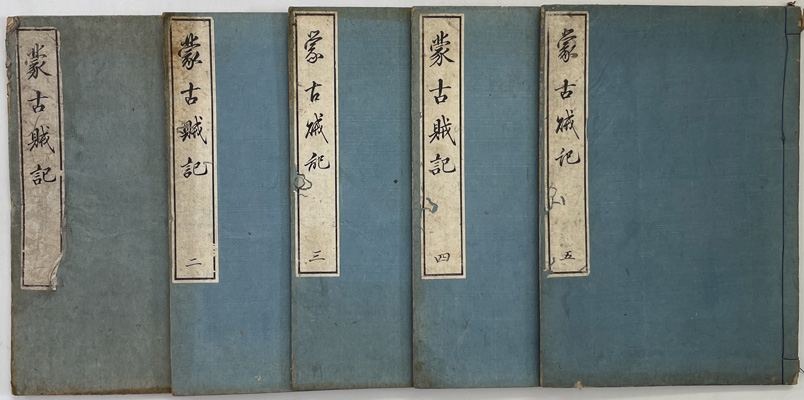 蒙古賊記
蒙古賊記
二
蒙古賊記
三
蒙古賊記
四
蒙古賊記
五